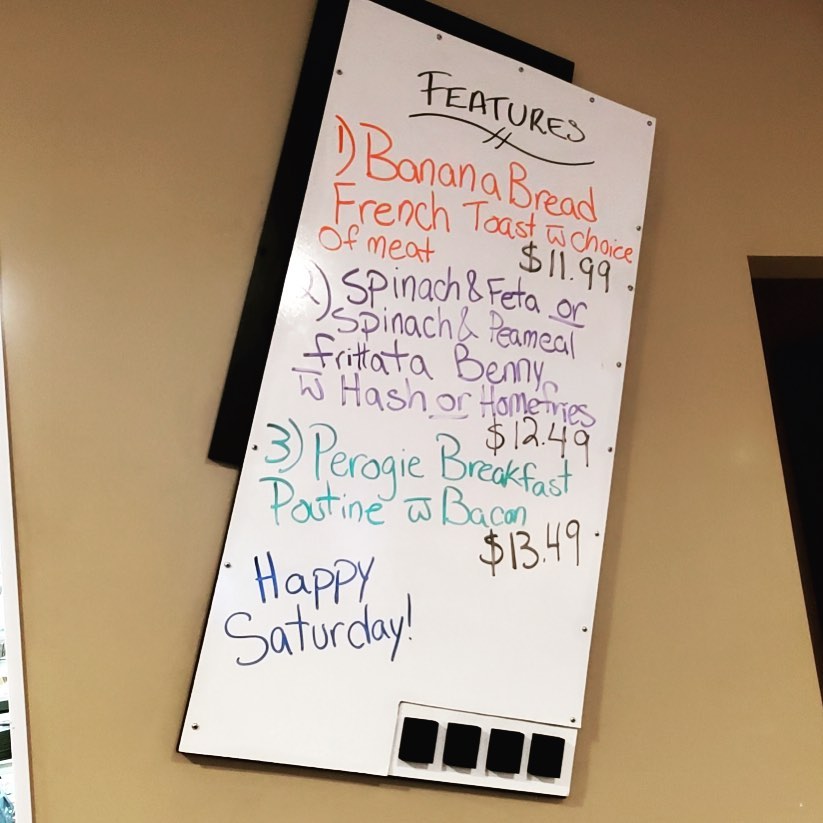 FEATURES
1) Banana Bread
French Toast w̅ choice
Of meat
$11.99
2) Spinach & Feta or
Spinach & Peameal
frittata Benny
w̅ Hash or Homefries
$12.49
3) Perogie Breakfast
Poutine w̅ Bacon
$13.49
Happy
Saturday!